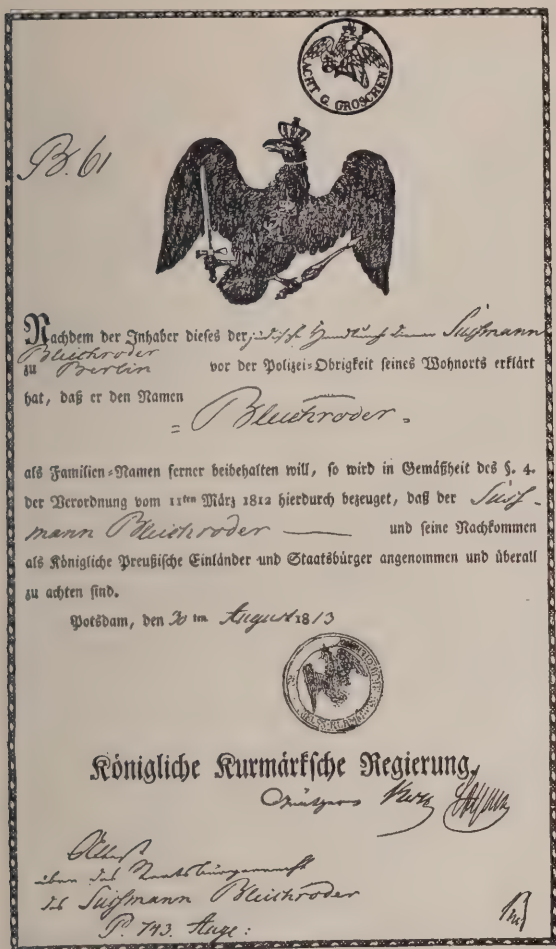 ACHT G. GROSCHEN
B. 61
Nachdem der Inhaber dieses der jüdische Handlungs Diener Suissmann
Bleichroder
zu Berlin vor der Polizei-Obrigkeit seines Wohnorts erklärt
hat, daß er den Namen
= Bleichroder =
als Familien-Namen ferner beibehalten will, so wird in Gemäßheit des §. 4.
der Verordnung vom 11ten März 1812 hierdurch bezeuget, daß der Suiss-
mann Bleichroder — und seine Nachkommen
als Königliche Preußische Einländer und Staatsbürger angenommen und überall
zu achten sind.
Potsdam, den 30 ten August 1813
Königliche Kurmärksche Regierung.
Attest
über das Staatsbürgerrecht
des Suissmann Bleichroder
P. 743. Aug: